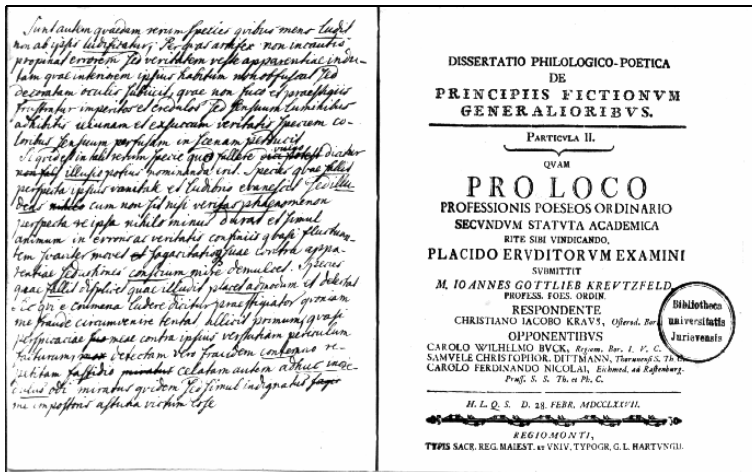 Sunt autem quaedam rerum species quibus mens ludit
non ab ipsis ludificatur. Per quas artifex non incautis
propinat errorem sed veritatem veste apparentiae indu-
tam quae internum ipsius habitum non obfuscat sed
decoratam oculis subiicit, quae non fuco et praestigiis
frustratur imperitos et credulos sed sensuum luminibus
adhibitis ieiunam et exsuccam veritatis speciem co-
loribus sensuum perfusam in scenam producit
Si quid est in hac rerum specie quod fallere vulgo dicitur
illusio potius nominanda erit. Species quae fallit
perspecta ipsius vanitate et ludibrio evanescit, sed illu-
dens cum non sit nisi veritas phaenomenon
perspecta re ipsa nihilo minus durat et simul
animum in erroris ac veritatis confiniis quasi fluctuan-
tem suaviter movet sagacitatisque suae contra appa-
rentiae seductiones
quae fallit displicet quae illudit placet admodum et delectat
Sic qui e crumena ludere dicitur praestigiator quoniam
me fraude circumvenire tentat allicit primum, quasi
perspicaciae meae contra ipsius versutiam periculum
facturum, detectam vero fraudem contemno re-
petitam fastidio celatam autem adhuc
miratus quidem sed simul indignatus
me impostoris astutia victum esse
DISSERTATIO PHILOLOGICO-POETICA
DE
PRINCIPIIS FICTIONVM
GENERALIORIBVS.
PARTICVLA II.
QVAM
PRO LOCO
PROFESSIONIS POESEOS ORDINARIO
SECVNDVM STATVTA ACADEMICA
RITE SIBI VINDICANDO,
PLACIDO ERVDITORVM EXAMINI
SVBMITTIT
M. IOANNES GOTTLIEB KREVTZFELD,
PROFESS. POES. ORDIN.
RESPONDENTE
CHRISTIANO IACOBO KRAVS, Osterod. Bor.
OPPONENTIBVS
CAROLO WILHELMO BVCK, Regiom. Bor. I. V. C.
SAMVELE CHRISTOPHOR. DITTMANN, S. Th.
CAROLO FERDINANDO NICOLAI, Eichmed. ad Rastenburg.
Pruss. S. S. Th. et Ph. C.
Bibliotheca
universitatis
Jurievensis
H. L. Q. S. D. 28. FEBR. MDCCLXXVII.
REGIOMONTI,
TYPIS SACR. REG. MAIEST. ET VNIV. TYPOGR. G. L. HARTVNGII.